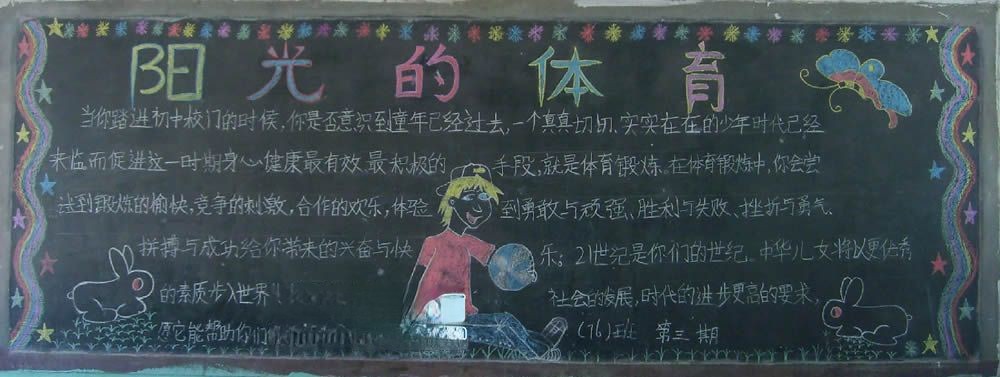 阳光的体育
当你踏进初中校门的时候,你是否意识到童年已经过去,一个真真切切、实实在在的少年时代已经
来临而促进这一时期身心健康最有效最积极的手段,就是体育锻炼。在体育锻炼中,你会尝
达到锻炼的愉快,竞争的刺激,合作的欢乐,体验到勇敢与顽强、胜利与失败、挫折与勇气.
拼搏与成功给你带来的兴奋与快乐;21世纪是你们的世纪。中华儿女将以更优秀
的素质步入世界 社会的发展,时代的进步更高的要求,
愿它能帮助你们 (76)班 第三期